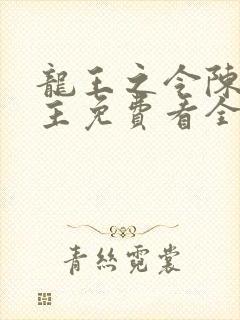 龍王之令陳
王免費看全
青絲霓裳